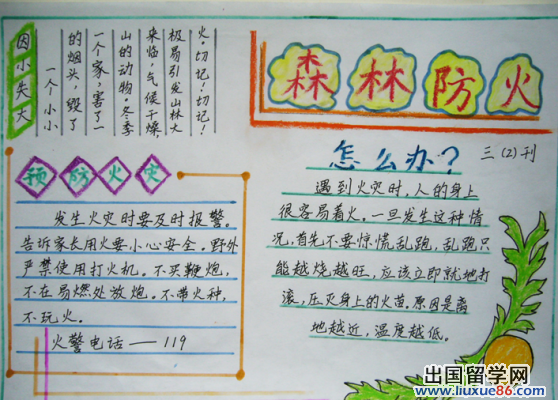 森林防火
三(2)刊
因小失大
一个小小
的烟头,毁了
一个家,害了一
山的动物。冬季
来临,气候干燥,
极易引发山林大
火。切记!切记!
预防火灾
发生火灾时要及时报警。
告诉家长用火要小心安全。野外
严禁使用打火机。不买鞭炮,
不在易燃处放炮。不带火种,
不玩火。
火警电话——119
怎么办?
遇到火灾时,人的身上
很容易着火。一旦发生这种情
况,首先不要惊慌乱跑,乱跑只
能越烧越旺,应该立即就地打
滚,压灭身上的火苗。原因是离
地越近,温度越低。
出国留学网
www.liuxue86.com